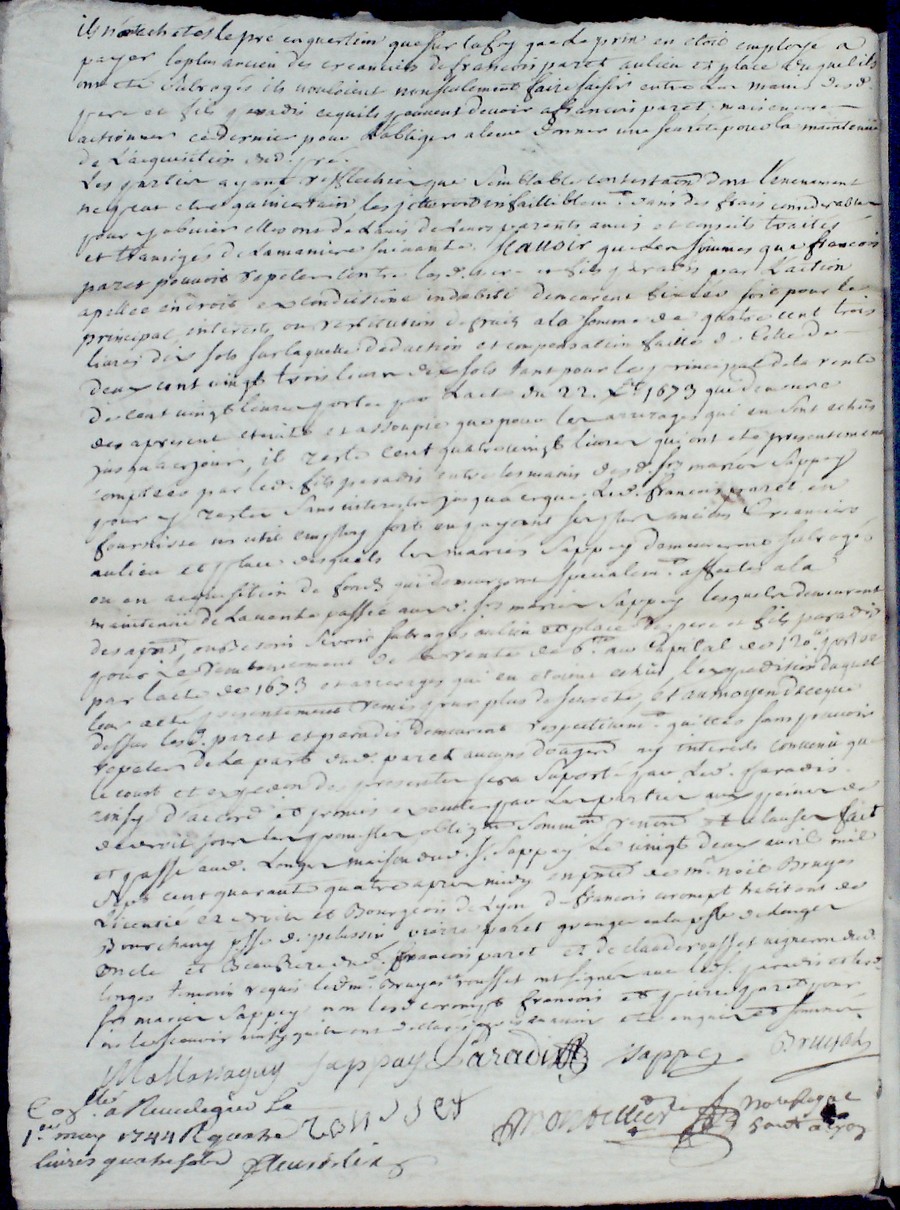 ils n'ont acheté le pré en question que sur la foy que le prix en etoit employé a
payer le plus ancien des creanciers de francois paret au lieu et place duquel ils
ont été subrogés ils vouloient non seulement faire saisir entre les mains desd.
pere et fils paradis ce quils peuvent devoir a francois paret mais encore
actionner ce dernier pour l'obliger a leur donner une seureté pour la maintenue
de l'acquisition dud. pré.
Les parties ayant reflechies que semblable contestaon dont l'evenement
ne peut etre qu'incertain, les jetteroit infailliblemt. dans des frais considerables
pour y obvier elles ont de l'avis de leurs parents, amis et conseils traités
et transigés de la maniere suivante. Scavoir que les sommes que francois
paret pouvoit repeter contre lesd. pere et fils paradis par l'action
apellée en droit condictione indebiti demeurent fixées soit pour le
principal, interets, ou restitution de fruits a la somme de quatre cent trois
livres dix sols sur laquelle deduction et compensation faittes de celle de
deux cent vingt trois livres dix sols tant pour le principal de la rente
de cent vingt livres portée par l'acte du 22. 1673 que demeure
des apresent eteinte et assoupie que pour les arrerages qui en sont echus
jusqu'a ce jour, il reste cent quatre vingt livres qui ont eté presentement
comptées par led. fils paradis entre les mains desd. mariés Sappey
pour y rester sans interets jusqu'a ce que led. francois paret en
fournisse un util employ soit en payant ses plus anciens creanciers
au lieu et place desquels les mariés Sappey demeureront subrogés
ou en acquisition de fonds qui demeureront specialemt. affectés a la
maintenue de la vente passée auxd. mariés Sappey lesquels demeurent
des apnt. subrogés au lieu et place desd. pere et fils paradis
pour le remboursement de la rente de 6.lt au capital de 120.lt portée
par l'acte de 1673 et arrerages qui en etoient echus, l'expedition duquel
leur a eté presentement remis pour plus de seureté, et au moyen de ce que
dessus lesd. paret et paradis demeurent respectivemt. quittes sans pouvoir
repeter de la part dud. paret aucuns ny interets convenu que
le cout et expedon des presentes sera suporté par led. paradis.
ainsy d'acord et promis executer par les parties aux peines de
de droit sous les promesses obligaons soumons renons et clauses fait
et passé aud. Longes maison dud. s. Sappey le vingt deux avril mil
sept cent quarante quatre apres midy en pnce de mr. noel Bruyas
licentié ez droits et Bourgeois de Lyon de francois habitant de
Bourchany psse de pelussin, pierre paret granger en la psse de longes
oncle et Beaufrere dud. francois paret et de claude rousset vigneron dud.
longes temoins requis led. mr. Bruyas rousset ont signés avec lesd. paradis et lesd.
mariés Sappey non lesd. francois et pierre paret pour
ne le scavoir ainsy quils ont declaré de ce enquis et sommés
Sappey Paradis Sappey Bruyas
rouset
Controllé a Rivedegier le
1er. may 1744 R quatre
livres quatre sols